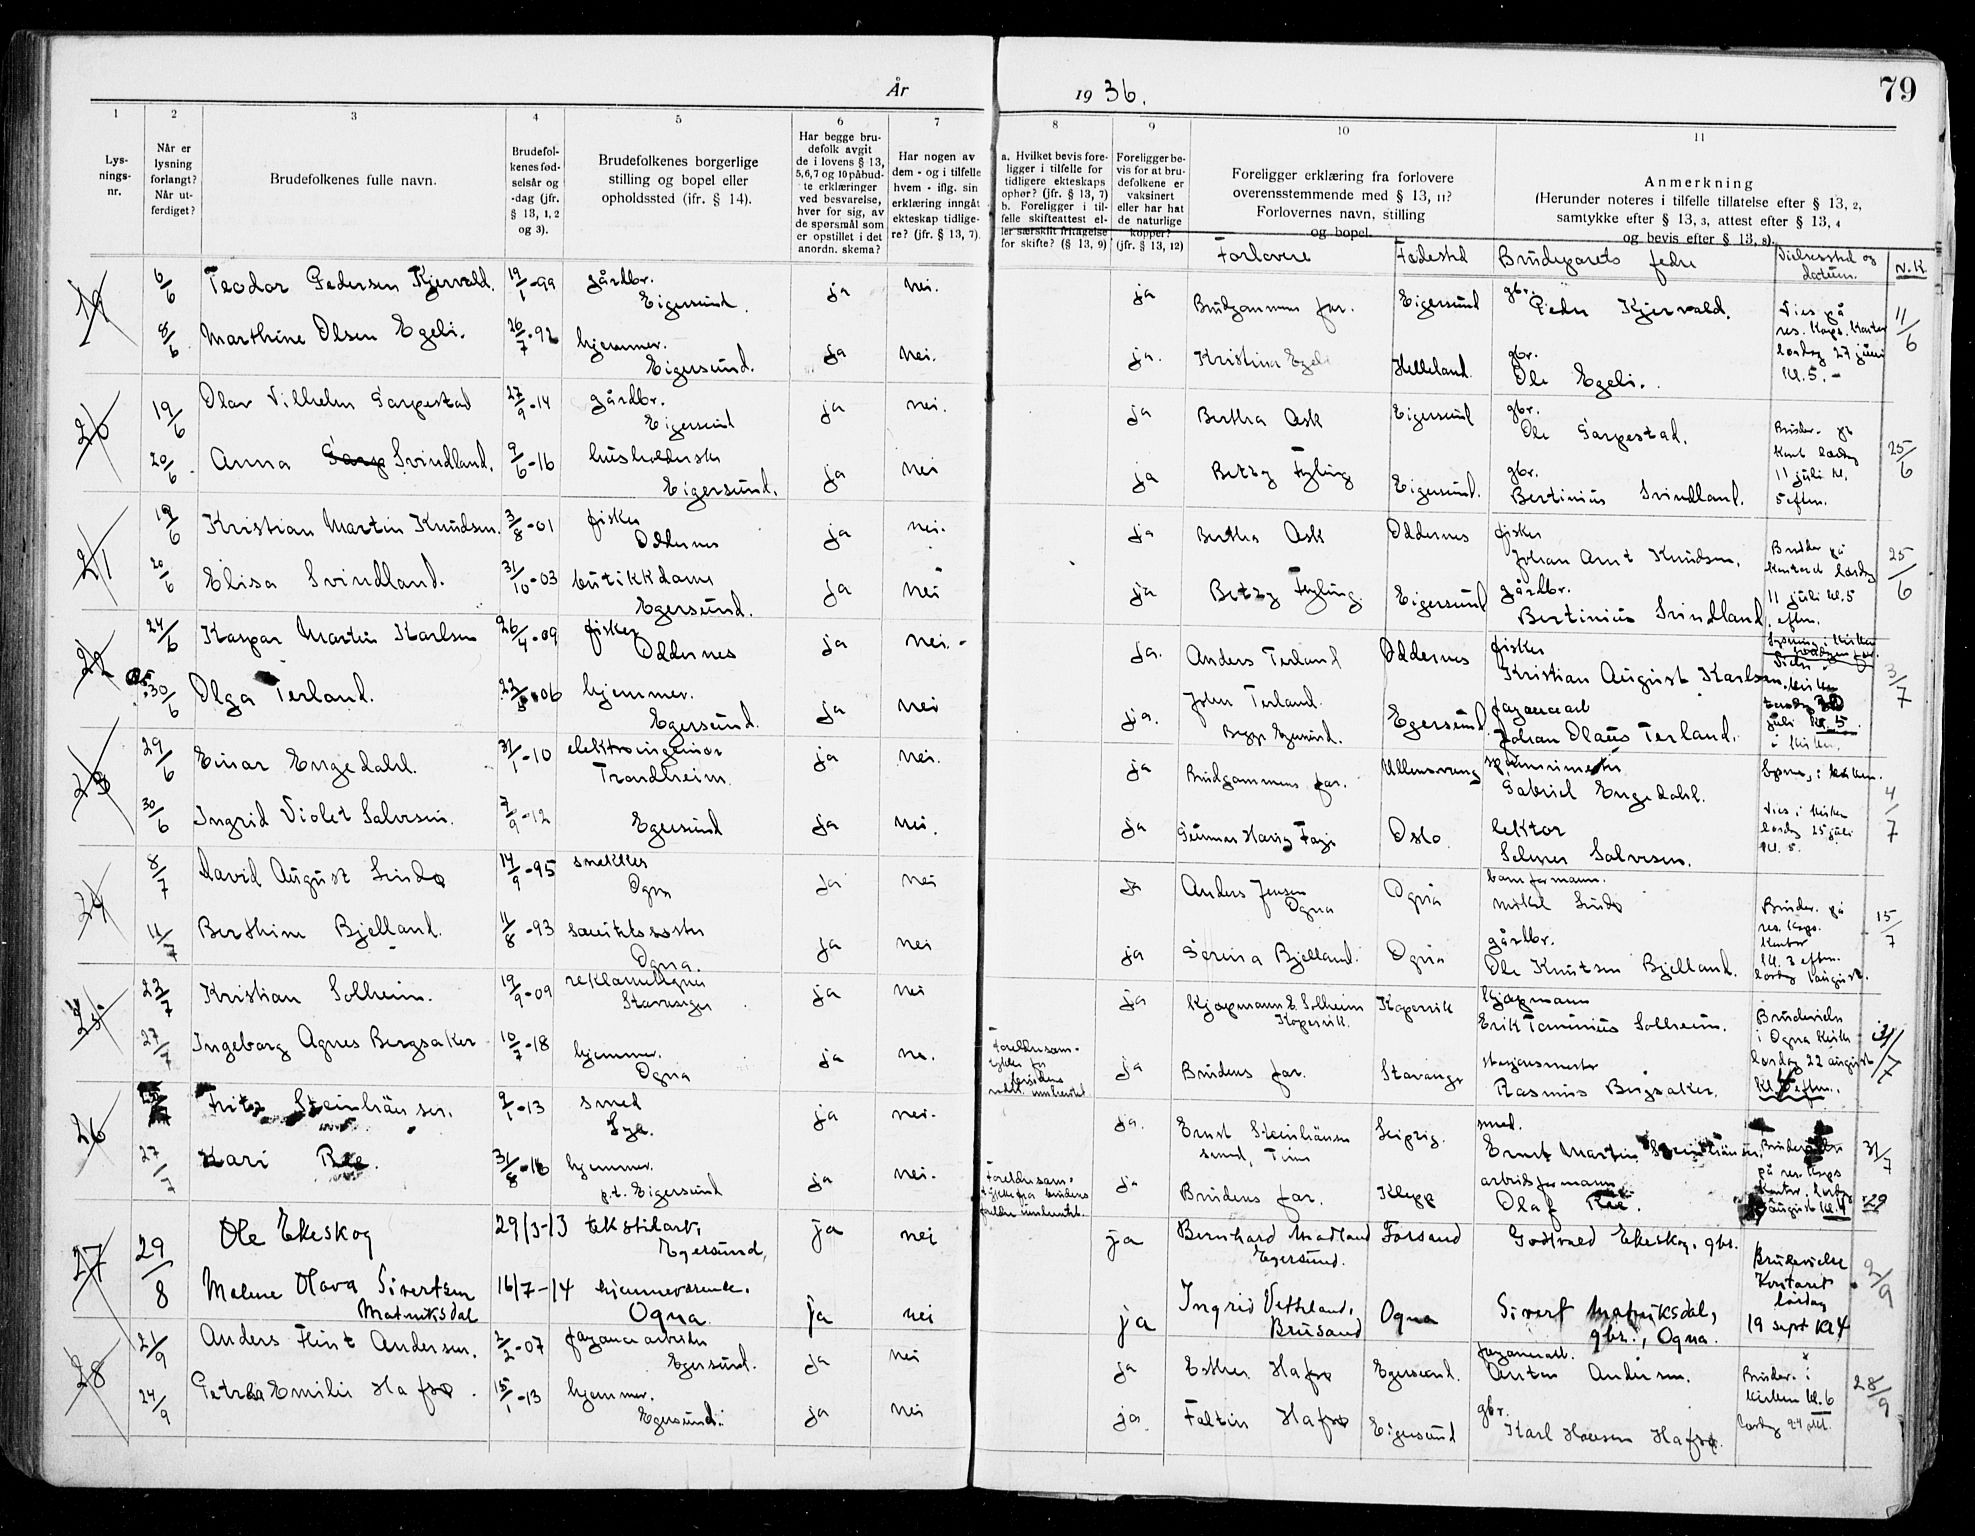 År 1936.
79
1 2 3 4 5 6 7 8 9 10 11
Lys-
nings-
nr.
Når er
lysning
forlangt?
Når ut-
ferdiget?
Brudefolkenes fulle navn.
Brudefol-
kenes fød-
selsår og
-dag (jfr.
§ 13, 1, 2
og 3).
Brudefolkenes borgerlige
stilling og bopel eller
opholdssted (jfr. § 14).
Har begge bru-
defolk avgit
de i lovens § 13,
5,6,7 og 10 påbud-
te erklæringer
ved besvarelse,
hver for sig, av
de spørsmål som
er opstillet i det
anordn. skema?
Har nogen av
dem - og i tilfelle
hvem - iflg. sin
erklæring inngåt
ekteskap tidlige-
re? (jfr. § 13, 7).
a. Hvilket bevis fore-
ligger i tilfelle for
tidligere ekteskaps
ophør? (jfr. § 13, 7)
b. Foreligger i til-
felle skifteattest el-
ler særskilt fritagelse
for skifte? (§ 13, 9)
Foreligger be-
vis for at bru-
defolkene er
vaksinert
eller har hat
de naturlige
kopper?
(jfr. § 13, 12)
Foreligger erklæring fra forlovere
overensstemmende med § 13, 11?
Forlovernes navn, stilling
og bopel.
Anmerkning
(Herunder noteres i tilfelle tillatelse efter § 13, 2,
samtykke efter § 13, 3, attest efter § 13, 4
og bevis efter § 13, 8).
Forlovere Fødested Brudeparets fedre Vielsessted og
datum. N.K
19 6/6 Teodor Pedersen Kjervald. 19/1-99 gårdbr.
Eigersund. ja nei. ja Brudgommens far. Eigersund gbr.
Peder Kjervald. Vies på
res. kaps. kontor
lørdag 27 juni
kl. 5.- 11/6
8/6 Marthine Olsen Egeli. 26/7-92 hjemmev.
Eigersund. ja nei. ja. Kristina Egeli Helleland. gbr.
Ole Egeli.
20 19/6 Olav Vilhelm Garpestad 27/9-14 gårdbr.
Eigersund ja nei. ja Bertha Ask Eigersund gbr.
Ole Garpestad. Brudev. på
kont lørdag
11 juli kl.
5 eftm. 25/6
20/6 Anna Garp Svindland. 9/6-16 husholderske
Eigersund. ja nei ja Betzy Fyling Eigersund. gbr.
Bertinius Svindland.
21 19/6 Kristian Martin Knudsen. 3/8-01 fisker
Oddernes ja nei. ja Bertha Ask Oddernes fisker
Johan Arnt Knudsen. Brudev på
kontoret lørdag
11 juli kl. 5
eftm. 25/6
20/6 Elisa Svindland. 31/10-03 butikkdame
Egersund. ja nei ja Betzy Fyling. Eigersund gårdbr.
Bertinius Svindland
22 24/6 Kaspar Martin Karlsen 26/4-09 fisker
Oddernes ja nei.- ja. Anders Terland Oddernes fisker
Kristian August Karlsen. 3/7
30/6 Olga Terland. hjemmev.
Egersund. ja nei ja. John Terland.
Begge Egersund. Egersund. fayancearb
Johan Olaus Terland. juli kl. 5.
i kirken.
23 29/6 Einar Engedahl. 31/1-10 elektroingeniør
Trondheim. ja nei. ja Brudgommens far. Ullensvang Gabriel Engedahl. 4/7
30/6 Ingrid Violet Salvesen. 7/9-12 Egersund ja nei. ja Gunnar Harry Oslo. lektor
Salvesen. Vies i kirken
lørdag 25 juli
kl. 5.
24 8/7 David August Lindø 14/9-95 snekker
Ogna ja nei ja Anders Jensen
Ogna Ogna baneformann.
Mikal Lindø Brudev. på
res. kaps.
kontor
kl. 3 eftm.
lørdag 1 august. 15/7
11/7 Berthine Bjelland. 11/8-93 sanitetssøster
Ogna. ja nei ja Serina Bjelland. Ogna gårdbr.
Ole Knutsen Bjelland.
25. 23/7 Kristian Solheim. 19/9-09 reklametegner
Stavanger ja nei ja Kjøpmann E. Solheim
Kopervik. Kopervik kjøpmann
Erik Tominius Solheim. Brudevielse
i Ogna kirke
lørdag 22 august
kl. 4 eftm. 31/7
27/7 Ingeborg Agnes Bergsaker 10/7-18 hjemmev.
Ogna ja nei. Foreldresam-
tykke for ja Brudens far. Stavanger stasjonsmester
Rasmus Bergsaker.
26 Fritz Steinhäuser. 9/1-13 smed
ja nei. ja. Ernst Steinhäuser
smed, Time Leipzig. smed.
Ernst Martin Steinhäuser. Brudevielse
på res. kaps
kontor, lørdag
august kl. 4 31/7
27/7 Kari Ree. 31/8-16 hjemmev.
p.t. Eigersund ja nei. Foreldresam-
tykke fra brudens ja Brudens far. Klepp arbeidsformann
Olaf Ree. 29
27 29/8 Ole Ekeskog 29/3-13 tekstilarb,
Egersund, ja nei ja Bernhard Madland
Egersund. Forsand Godtvard Ekeskog, gbr. Brudevielse
Kontoret
lørdag
19 sept kl 4 2/9
Malene Olava Sivertsen
Matniksdal 16/7-14 hjemmeværende.
Ogna. ja nei ja Ingrid Vetteland,
Brusand Ogna Sivert Matniksdal,
gbr., Ogna.
28 21/9 Anders Flint Andersen. 2/2-07 fayancearbeider
Egersund. ja nei ja Esther Hafsø Egersund. fayancearb.
Anton Andersen. Brudev. i
kirken kl. 6
lørdag 24 okt. 28/9
24/9 Petrea Emilie Hafsø. 15/1-13 hjemmev.
Egersund. ja nei ja. Faltin Hafsø Eigersund gbr.
Karl Hansen Hafsø.